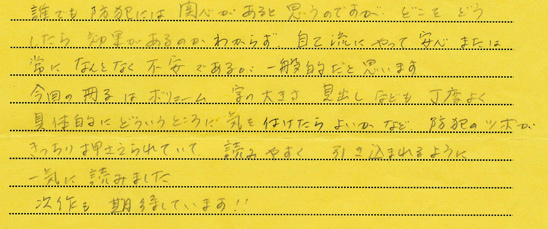 誰でも 防犯には 関心があると 思うのですが どこを どう
したら 効果があるのか わからず 自己流にやって 安心 または
常に なんとなく 不安 であるが 一般的だと思います
今回の冊子は ボリューム 字の大きさ 見出し なども 丁度よく
具体的に どういうところに 気を付けたら よいか など 防犯のツボが
きっちり押さえられていて 読みやすく 引き込まれるように
一気に 読みました
次作も 期待しています!!